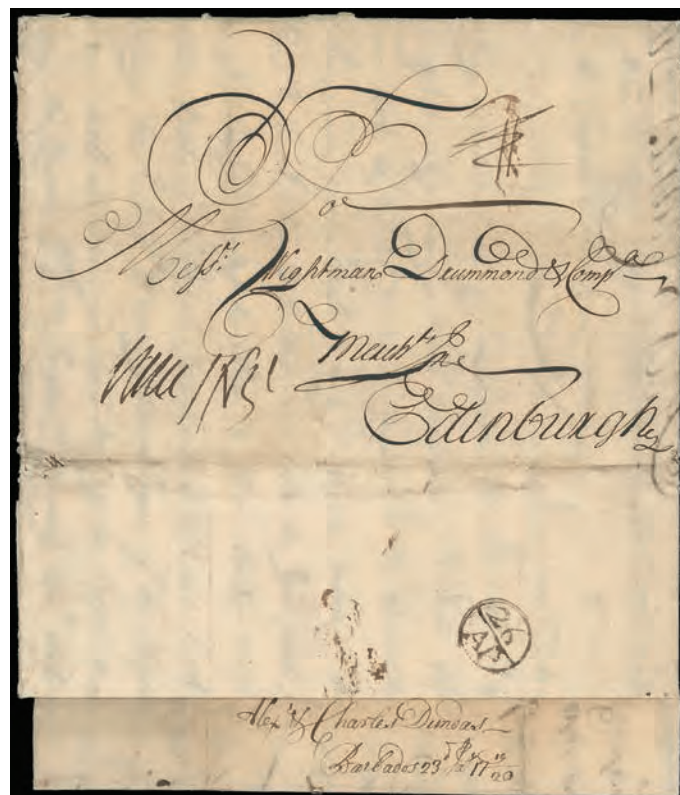 To
Mess.rs Wightman Drummond & Comp.a
Merch.ts In
Edinburgh
26
AP
Alex.r & Charles Dundas
Barbados 23d 17 19/20